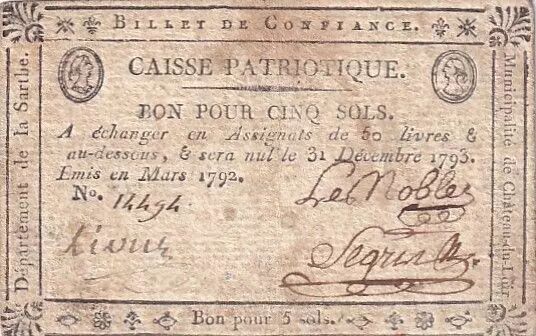 BILLET DE CONFIANCE.
CAISSE PATRIOTIQUE.
BON POUR CINQ SOLS.
A échanger en Assignats de 50 livres &
au-dessous, & sera nul le 31 Décembre 1793.
Emis en Mars 1792.
No. 14494
Le Nobles
Bon pour 5 sols.
Département de la Sarthe.
Municipalité de Château-du-Loir